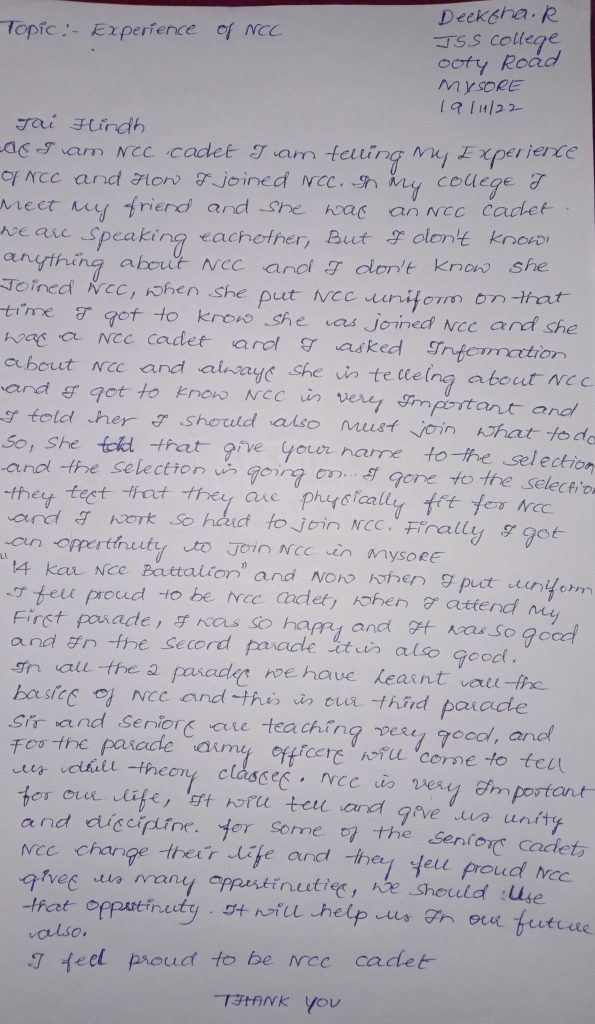 Deeksha.R
Topic :- Experience of NCC
JSS college
ooty Road
MYSORE
19/11/22
Jai Hindh
As I am NCC cadet I am telling My Experience
of NCC and How I joined NCC. In My college I
Meet My friend and she was an NCC cadet.
we are speaking eachother, But I don't know
anything about NCC and I don't know she
Joined NCC, when she put NCC uniform on that
time I got to know she was joined NCC and she
was a NCC cadet and I asked Information
about NCC and always she is telleing about NCC
and I got to know NCC is very Important and
I told her I should also Must join what to do
So, she told that give your name to the selection
and the selection is going on... I gone to the selection
they test that they are physically fit for NCC
and I work so hard to join NCC. Finally I got
an oppertinuty to Join NCC in MYSORE
"14 Kar NCC Battalion" and Now when I put uniform
I fell proud to be NCC cadet, when I attend My
First parade, I was so happy and It was so good
and In the second parade it is also good.
In all the 2 parades we have Learnt all the
basics of NCC and this is our third parade
Sir and Seniors are teaching very good, and
For the parade army officers will come to tell
us drill theory classes. NCC is very Important
for our life, It will tell and give us unity
and discipline. for some of the seniors cadets
NCC change their life and they fell proud NCC
gives us many oppertinuties, we should use
that oppertinuty. It will help us In our future
also.
I feel proud to be NCC cadet
THANK YOU